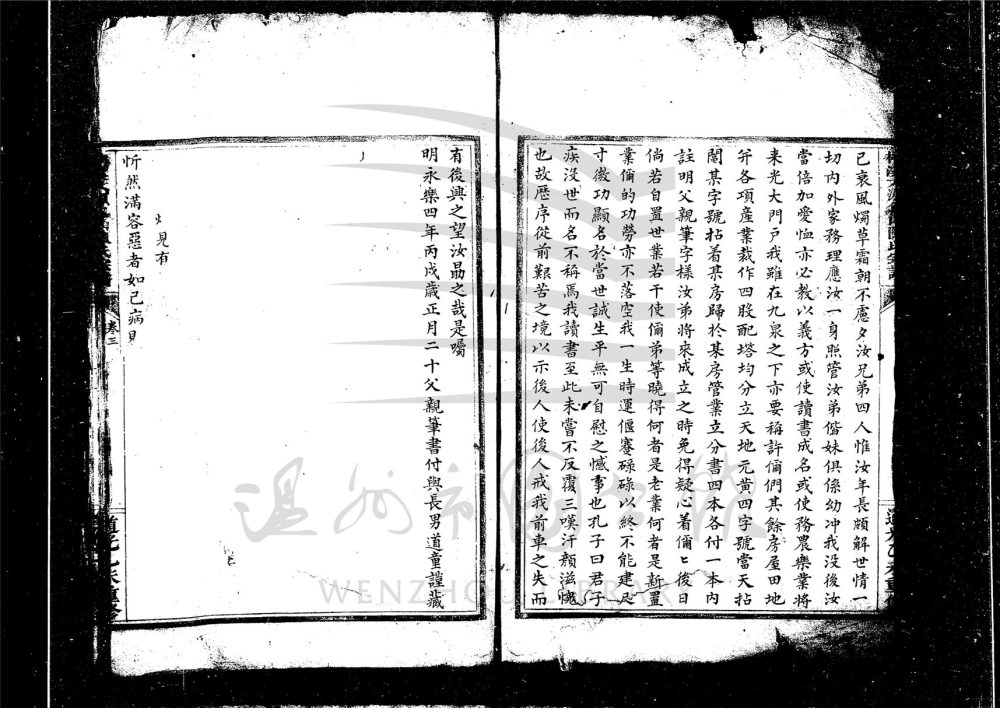 已衰風燭草霜朝不慮夕汝兄弟四人惟汝年長頗解世情一
切內外家務理應汝一身照管汝弟偕妹俱係幼冲我没後汝
當倍加愛恤亦必教以義方或使讀書成名或使務農樂業將
来光大門戸我雖在九泉之下亦要稱許儞們其餘房屋田地
并各項産業裁作四股配塔均分立天地元黄四字號當天拈
鬮某字號拈着某房歸於某房管業立分書四本各付一本内
註明父親筆字様汝弟將來成立之時免得疑心着儞〻後日
倘若自置世業若干使儞弟等曉得何者是老業何者是新置
業儞的功勞亦不落空我一生時運偃蹇碌碌以終不能建尺
寸微功顯名於當世誠生平無可自慰之憾事也孔子曰君子
疾没世而名不稱焉我讀書至此未嘗不反覆三嘆汗顔滋愧
也故歴序從前艱苦之境以示後人使後人戒我前車之失而
有後興之望汝勗之哉是囑
明永樂四年丙戌歳正月二十父親筆書付與長男道童謹藏
見有
忻然滿容惡者如己病見
卷三
道光乙未重修
温州市圖書館
WENZHOU LIBRARY